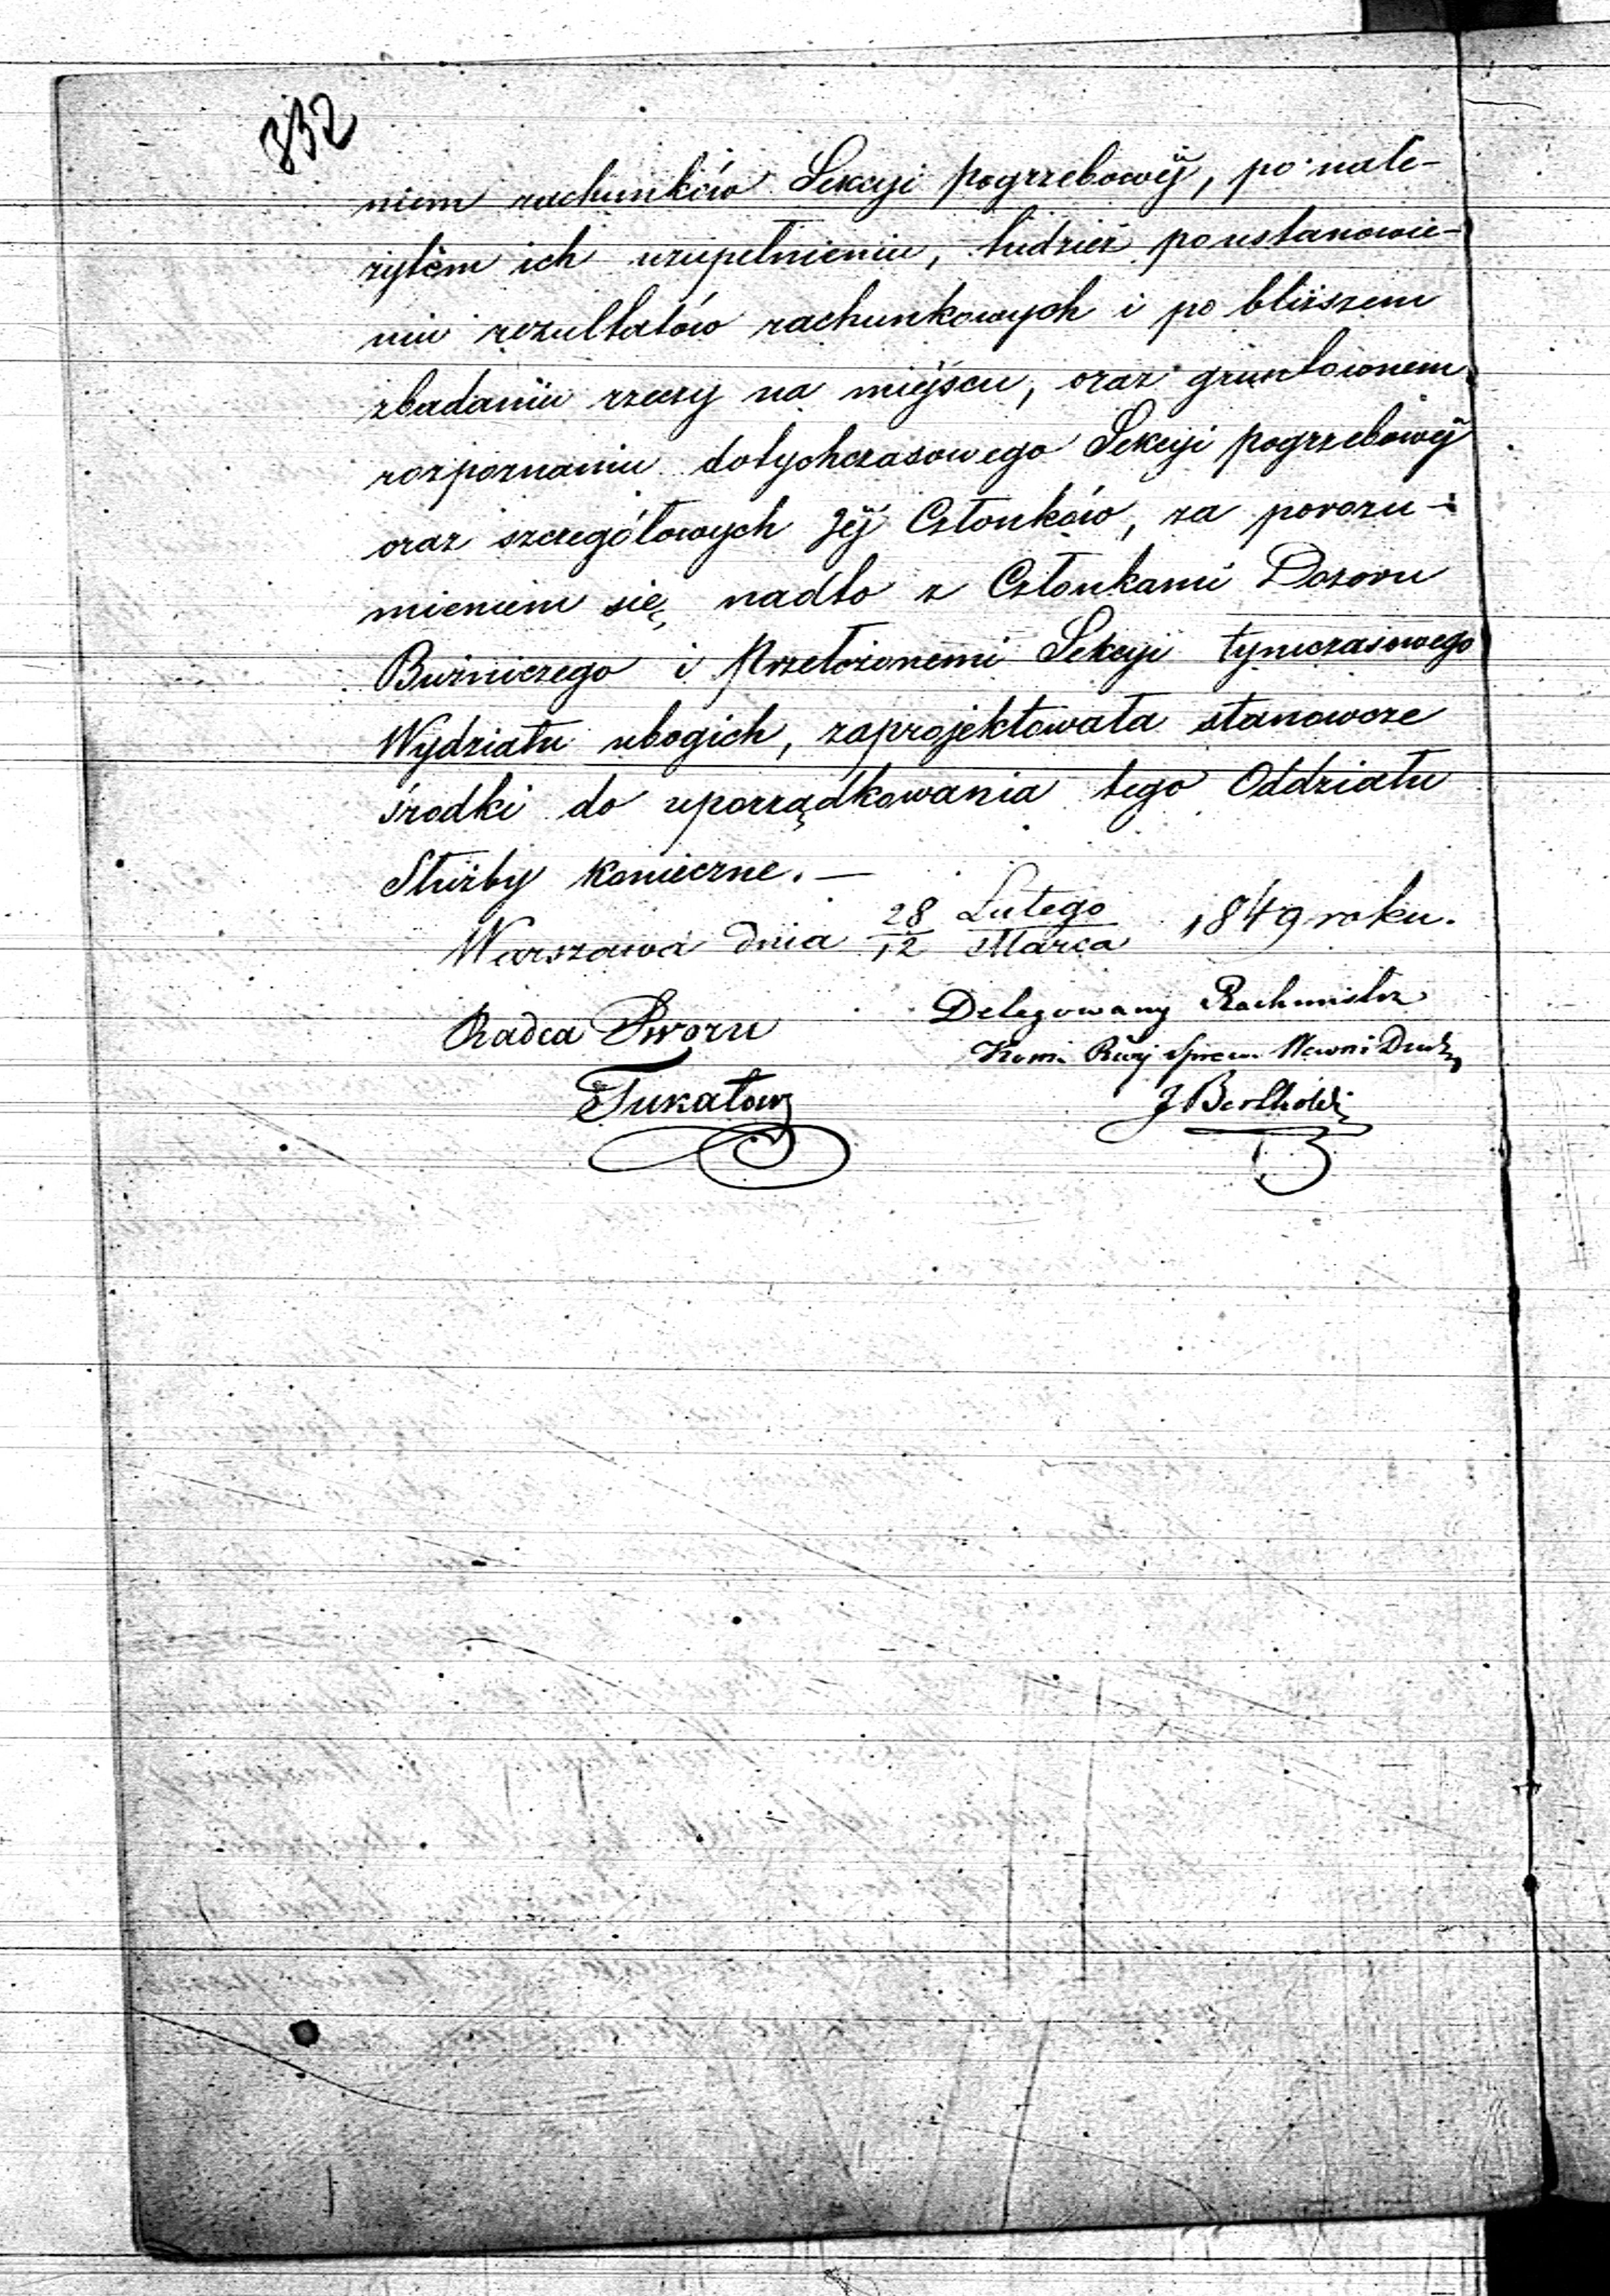 832
niem rachunków Sekcyi pogrzebowéj, po nale-
żytém ich uzupełnieniu, tudzież po ustanowie-
niu rezultatów rachunkowych i po bliższem
zbadaniu rzeczy na miejscu, oraz gruntownem
rozpoznaniu dotychczasowego Sekcyi pogrzebowéj
oraz szczegółowych Jéj Członków, za porozu-
mieniem się, nadto z Członkami Dozoru
Bużniczego i Przełożonemi Sekcyi tymczasowego
Wydziału ubogich, zaprojektowała stanowcze
środki do uporządkowania tego Oddziału
Służby konieczne. —
Warszawa dnia 28/12 Lutego/Marca 1849 roku.
Radca Dworu
Delegowany Rachmistrz
Kom: Rząj Spraw Wewn: i Duch:
Tukałow
J Berthold